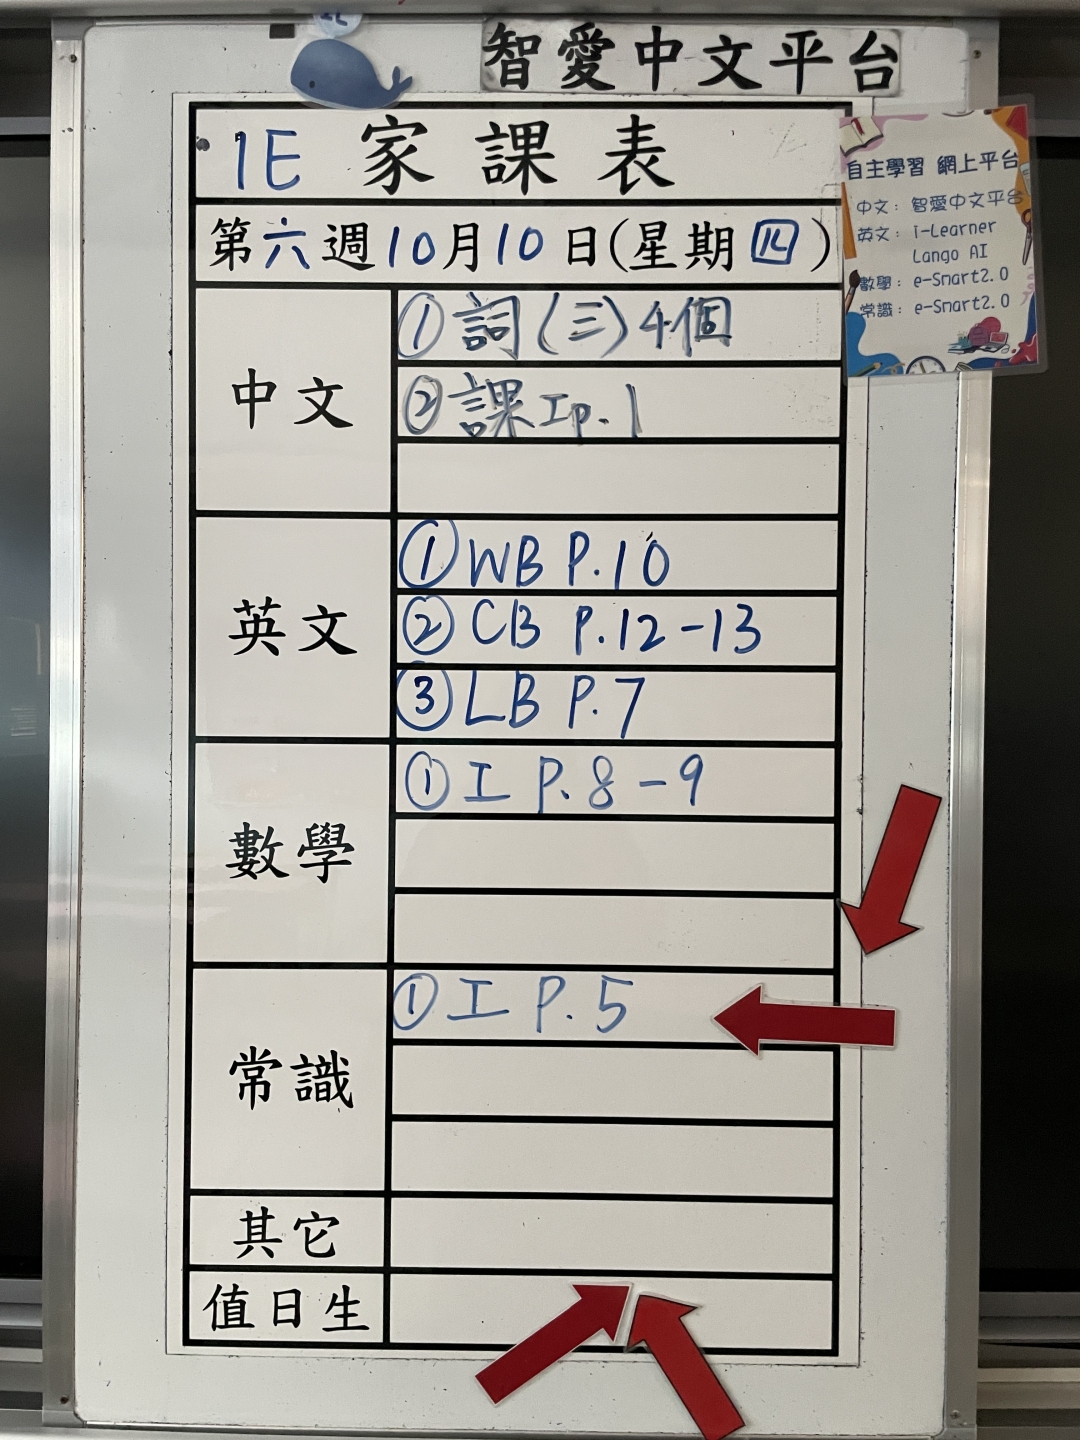 智愛中文平台
1E 家課表
第六週10月10日(星期四)
自主學習 網上平台
中文：智愛中文平台
英文：I-Learner
Lango AI
數學：e-Smart2.0
常識：e-Smart2.0
中文
①詞(三)4個
②課工p.1
英文
①WB P.10
②CB P.12-13
③LB P.7
數學
①工 P.8-9
常識
①工 P.5
其它
值日生